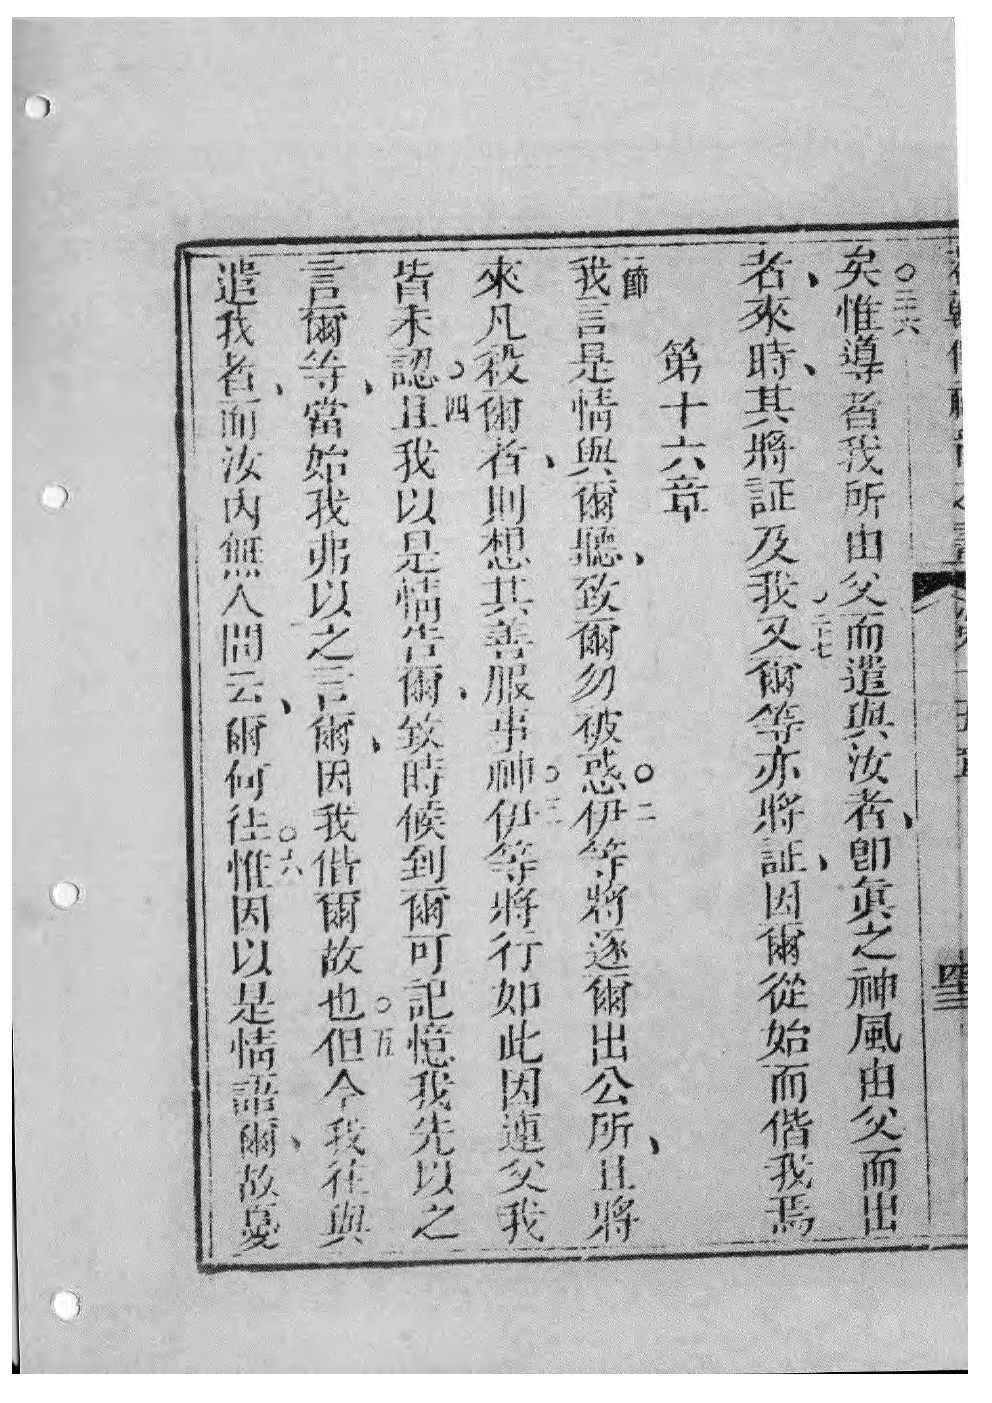 ○二六
矣惟導者我所由父而遣與汝者、卽眞之神風由父而出
者、來時、其將証及我○二七又爾等亦將証、因爾從始而偕我焉
第十六章
一節
我言是情與爾聽、致爾勿被惑○二伊等將逐爾出公所、且將
來凡殺爾者、則想其善服事神○三伊等將行如此因連父我
皆未認○四且我以是情告爾、致時候到爾可記憶我先以之
言爾等、當始我弗以之言爾、因我偕爾故也○五但今我往與
遣我者、而汝內無人問云、爾何往○六惟因以是情語爾、故憂